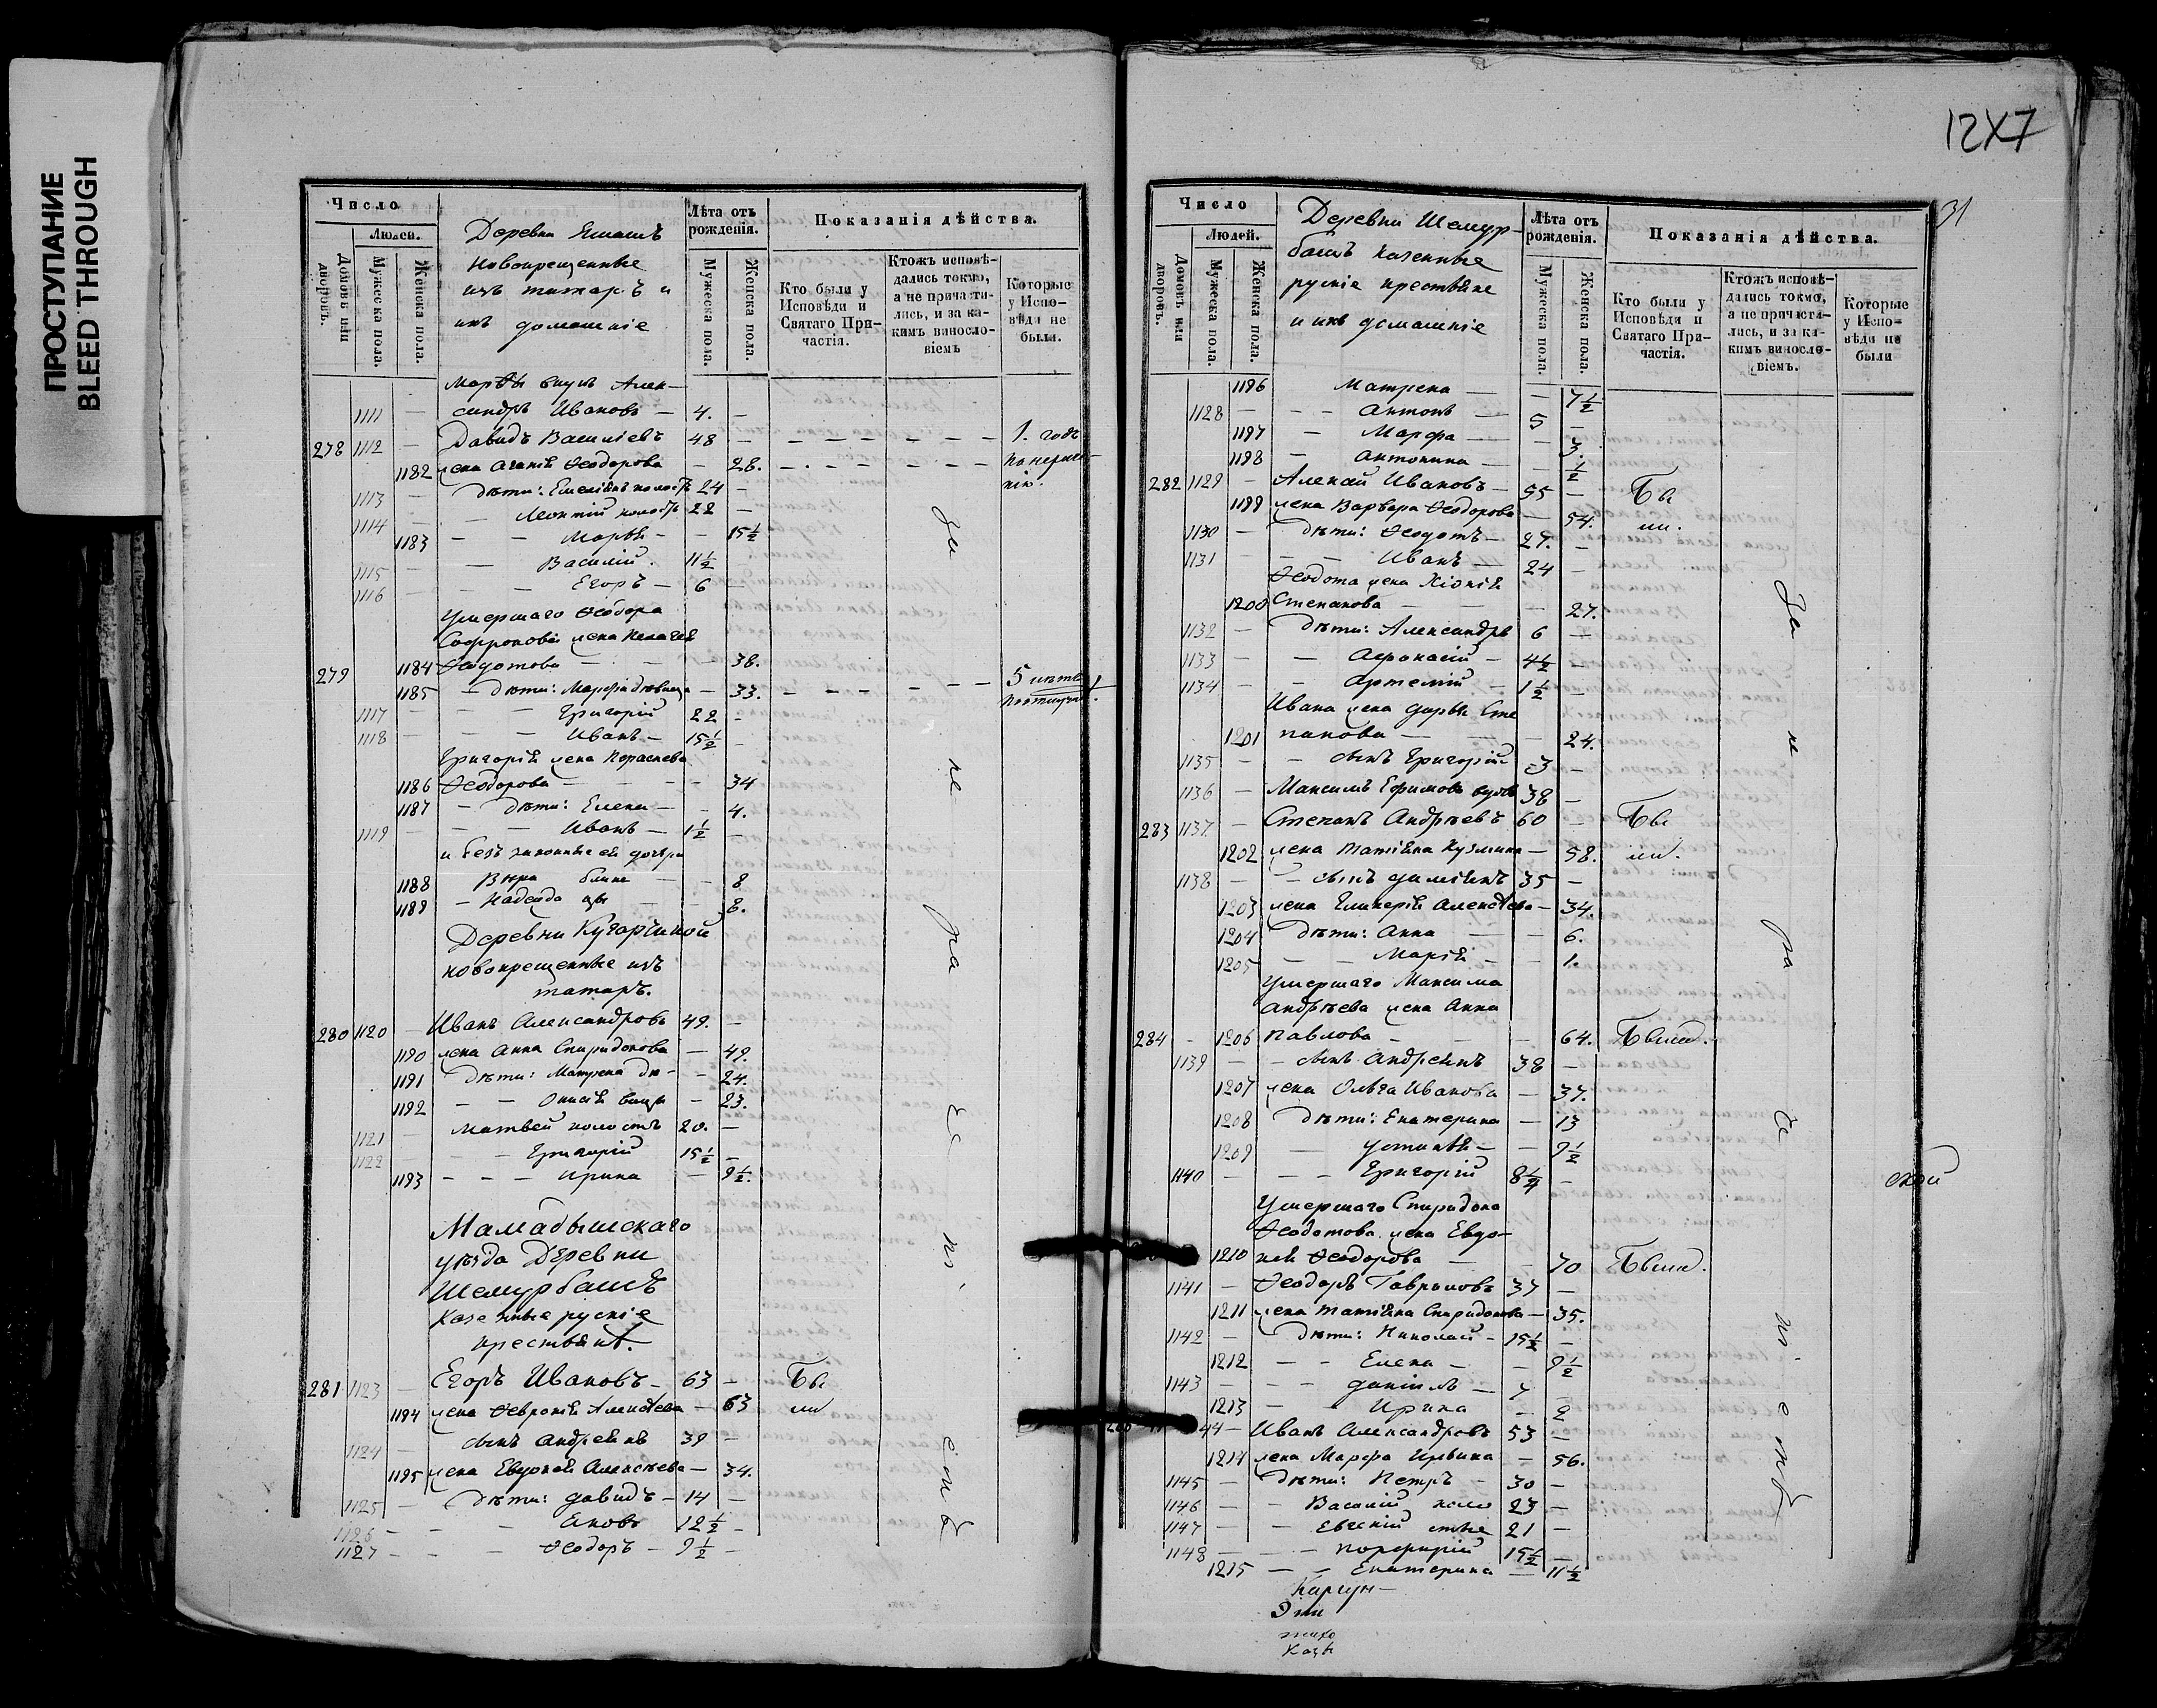 ПРОСТУПАНИЕ
BLEED THROUGH
Число
Людей.
Домовъ или дворовъ.
Мужеска пола.
Женска пола.
Деревни
новокрещенные
изъ татаръ и
ихъ домашніе
Лѣта отъ рожденія.
Мужеска пола.
Женска пола.
Показанія дѣйства.
Кто были у Исповѣди и Святаго Причастія.
Ктожъ исповѣдались токмо, а не причастились, и за какимъ винословіемъ
Которые у Исповѣди не были.
внукъ Алек-
1111 — сандръ Ивановъ — 4. —
278 1112 — Давидъ Василіевъ 48 — 1. годъ
1182 жена Агапія Ѳеодорова — 28.
1113 — дѣти: холостъ 24 —
1114 — Леонтій холостъ 22 —
1183 — Марѳа — 15½
1115 — Василій. 11½
1116 — Егоръ — 6
умершаго Ѳеодора
Софронова жена Пелагея
279 1184 Ѳедотова — 38. 5 лѣтъ
1185 — дѣти: Марфа дѣвица — 33.
1117 — Григорій 22 —
1118 — Иванъ — 15½ —
Григорія жена Параскева
1186 Ѳеодорова — 34
1187 — дѣти: Елена — 4.
1119 — Иванъ — 1½ —
и безъ законные ея дочери
1188 Вѣра близне — 8
1189 — Надежда цы — 8.
Деревни
новокрещенные изъ
татаръ.
280 1120 — Иванъ Александровъ 49. —
1190 жена Анна Спиридонова — 49.
1191 дѣти: Матрена дѣ- — 24.
1192 — — вицы — 23.
1121 — Матвей холостъ 20. —
1122 — Григорій 15½ —
1193 — — — Ирина — 9½.
Мамадышскаго
уѣзда Деревни
Шемурбашъ
Казенные рускіе
крестьяне.
281 1123 — Егоръ Ивановъ — 63 — Бы
1194 жена Ѳевронія Алексѣева — 63 ли
1124 — сынъ Андреянъ 39 —
1195 жена Евдокія Алексѣева — 34.
1125 — дѣти: Давидъ — 14 —
1126 — — Яковъ 12½ —
1127 — — Ѳеодоръ — 9½ —
За не ра че ні емъ
12X7
31
Число
Людей.
Домовъ или дворовъ.
Мужеска пола.
Женска пола.
Деревни Шемур-
башъ казенные
рускіе крестьяне
и ихъ домашніе
Лѣта отъ рожденія.
Мужеска пола.
Женска пола.
Показанія дѣйства.
Кто были у Исповѣди и Святаго Причастія.
Ктожъ исповѣдались токмо, а не причастились, и за какимъ винословіемъ.
Которые у Исповѣди не были
1196 Матрена — — 7½
1128 — — — Антонъ — 5 —
1197 — Марфа — — 3.
1198 — Антонина — — ½
282 1129 — Алексѣй Ивановъ — 55 — Бы
1199 жена Варвара Ѳеодорова — 54. ли.
1130 — дѣти: Ѳеодотъ — 27. —
1131 — — Иванъ — 24 —
Ѳеодота жена Хіонія
1200 Степанова — 27.
1132 — дѣти: Александръ 6 —
1133 — — Аѳонасій — 4½ —
1134 — — Артемій — 1½ —
Ивана жена Дарья Сте
1201 панова — 24.
1135 — — сынъ Григорій 3 —
1136 — Максимъ Ефимовъ вдовъ 38 —
283 1137. — Степанъ Андрѣевъ 60 — Бы
1202 жена Татіяна Кузмина — 58. ли.
1138 — — сынъ Даміянъ 35 —
1203 жена Гликерія Алексѣева — 34.
1204 дѣти: Анна — — 6.
1205 — — Марія — — 1.
умершаго Максима
Андрѣева жена Анна
284 — 1206 Павлова — — 64. Была.
1139 — — сынъ Андреянъ 38 —
1207 жена Ольга Иванова — 37.
1208 дѣти: Екатерина — 13
1209 — Устинья — — 9½
1140 — — Григорій 8¼ —
умершаго Спиридона
Ѳеодотова жена Евдо-
1210 кія Ѳеодорова — — 70 Была.
1141 — Ѳеодоръ Гавриловъ 37 —
1211 жена Татіяна Спиридонова — 35.
1142 — дѣти: Николай — 15½ —
1212 — — Елена — — 9½
1143 — — Даніилъ — 7 —
1213 — — Ирина — 2
44 — Иванъ Александровъ 53 —
1214 жена Марфа Ильина — 56.
1145 — дѣти: Петръ — 30 —
1146 — — Василій холо 23 —
1147 — — Евгеній стые 21 —
1148 — — Порфирій 15½ —
1215 — — Екатерина — 11½
За не ра че ні емъ